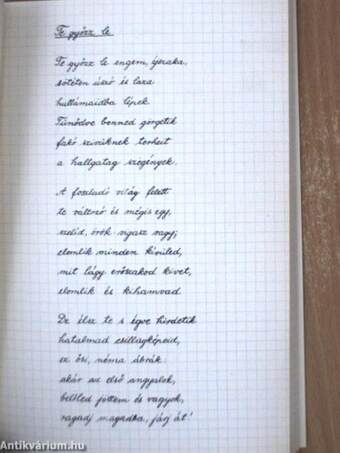 Te győzz le
Te győzz le engem, éjszaka,
sötéten úszó és laza
hullámaidba lépek.
Tünődve benned görgetik
fakó szivüknek terheit
a hallgatag szegények.
A foszladó világ felett
te változó és mégis egy,
szelid, örök vigasz vagy;
elomlik minden kivüled,
mit lágy erőszakod kivet,
elomlik és kihamvad.
De élsz te s égve hirdetik
hatalmad csillagképeid,
ez ősi, néma ábrák:
akár az első angyalok,
belőled jöttem és vagyok,
ragadj magadba, járj át!
Antikvárium.hu